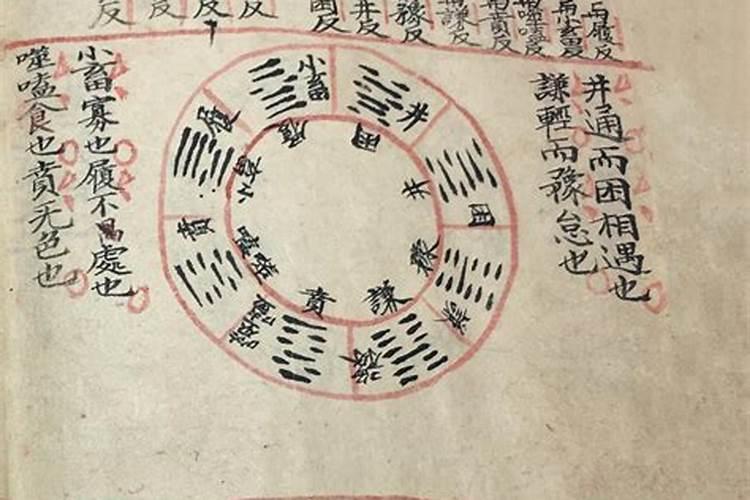 与履反
与小畜反
与噬嗑反
与賁反
与謙反
豫反
井反
困反
反
反
反
反
井通而困相遇也
謙輕而豫怠也
小畜寡也履不處也
噬嗑食也賁无色也
小畜
井
困
噬嗑
賁
履
困
井
豫
謙
賁
噬嗑
小畜
履